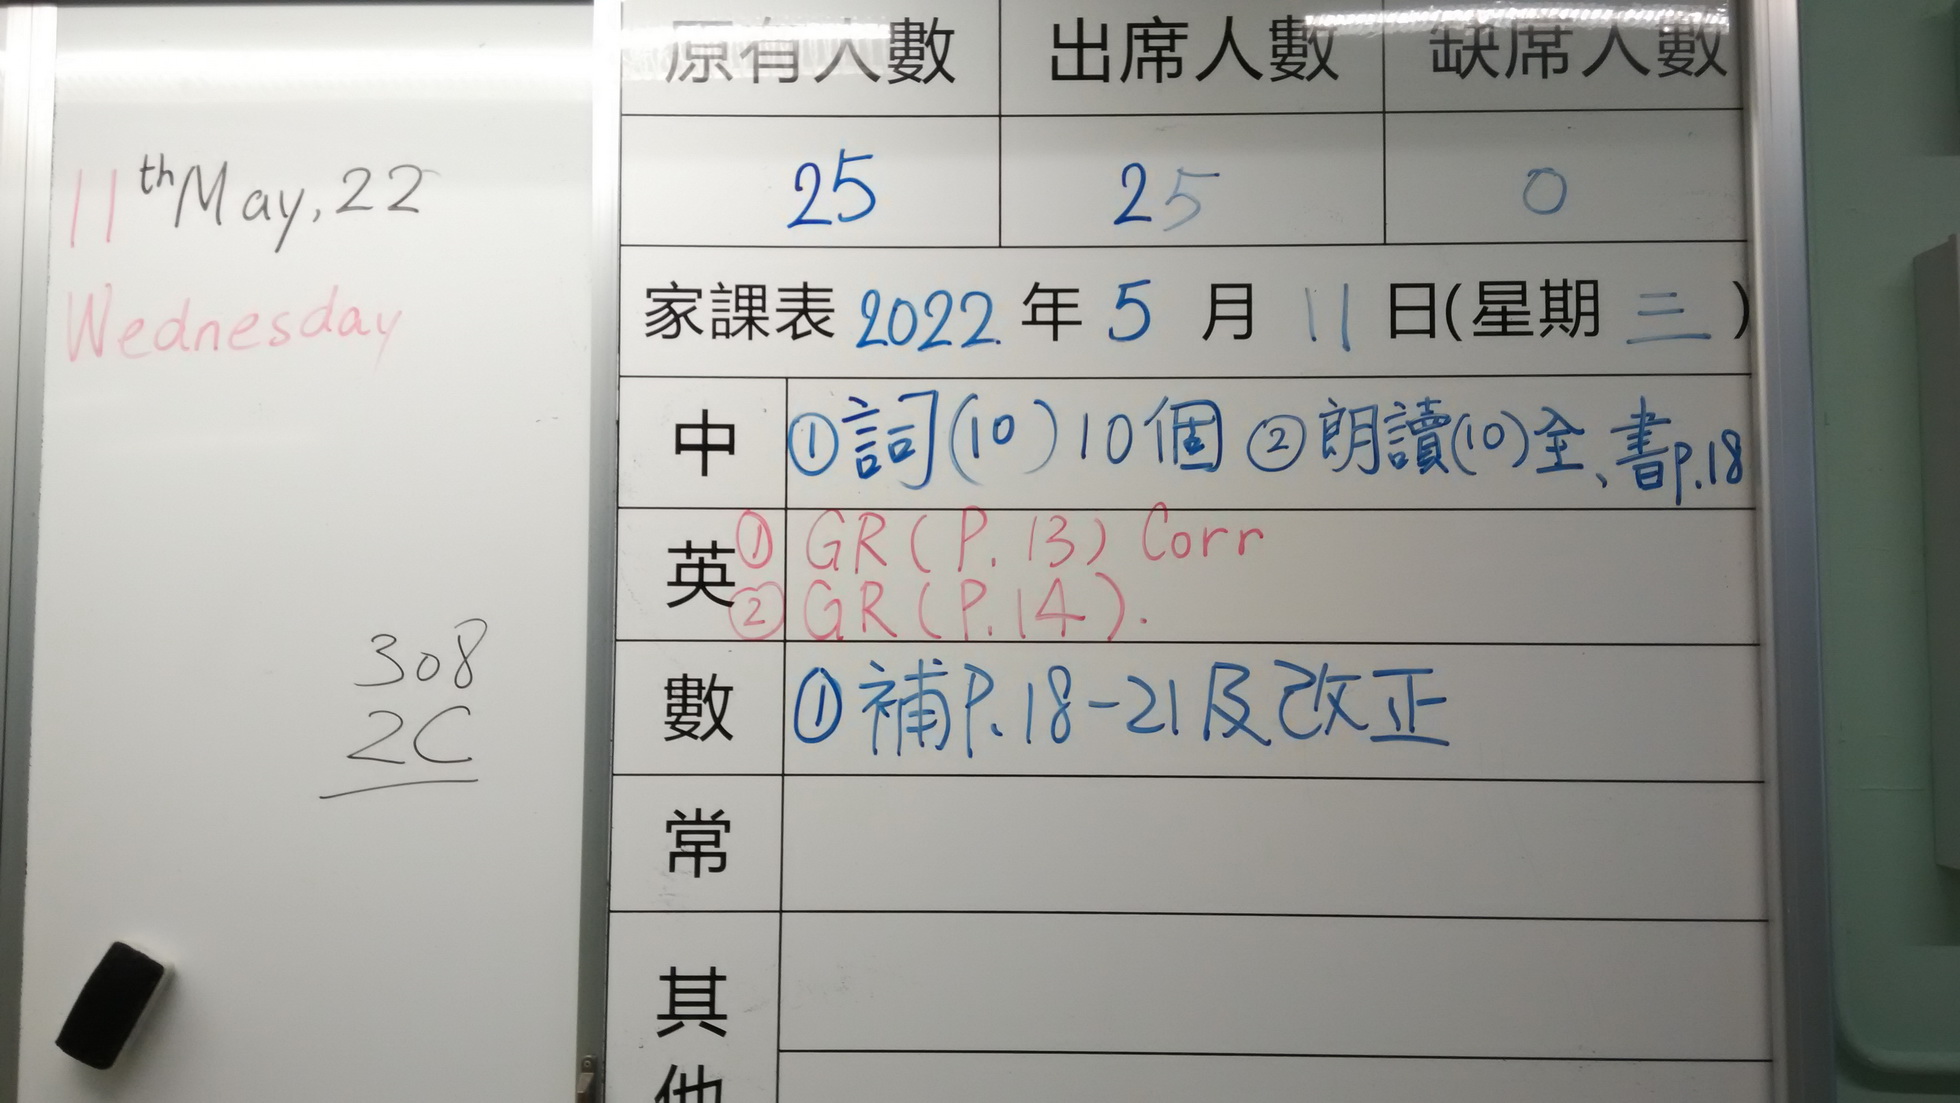 11th May, 22
Wednesday
308
2C
原有人數 出席人數 缺席人數
25 25 0
家課表 2022 年 5 月 11 日(星期 三 )
中 ①詞(10)10個 ②朗讀(10)全、書p.18
英 ① GR(P.13) Corr
② GR(P.14).
數 ①補P.18-21及改正
常
其
他